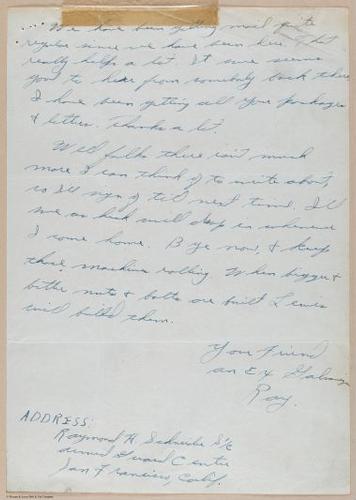 .... We have been getting mail quite
regular since we have been here. That
really helps a lot. It sure seems
good to hear from somebody back there
I have been getting all your packages
& letters. Thanks a lot.
Well folks there isn't much
more I can think of to write about,
so I'll sign of til next time. I'll
me back will drop in whenever
I come home. Bye now, & keep
those machines rolling. When bigger &
better nuts & bolts are built Lewis
will build them.
Your Friend
an Ex
Ray.
ADDRESS:
Raymond H. S/C
Guard Center
San Francisco, Calif.